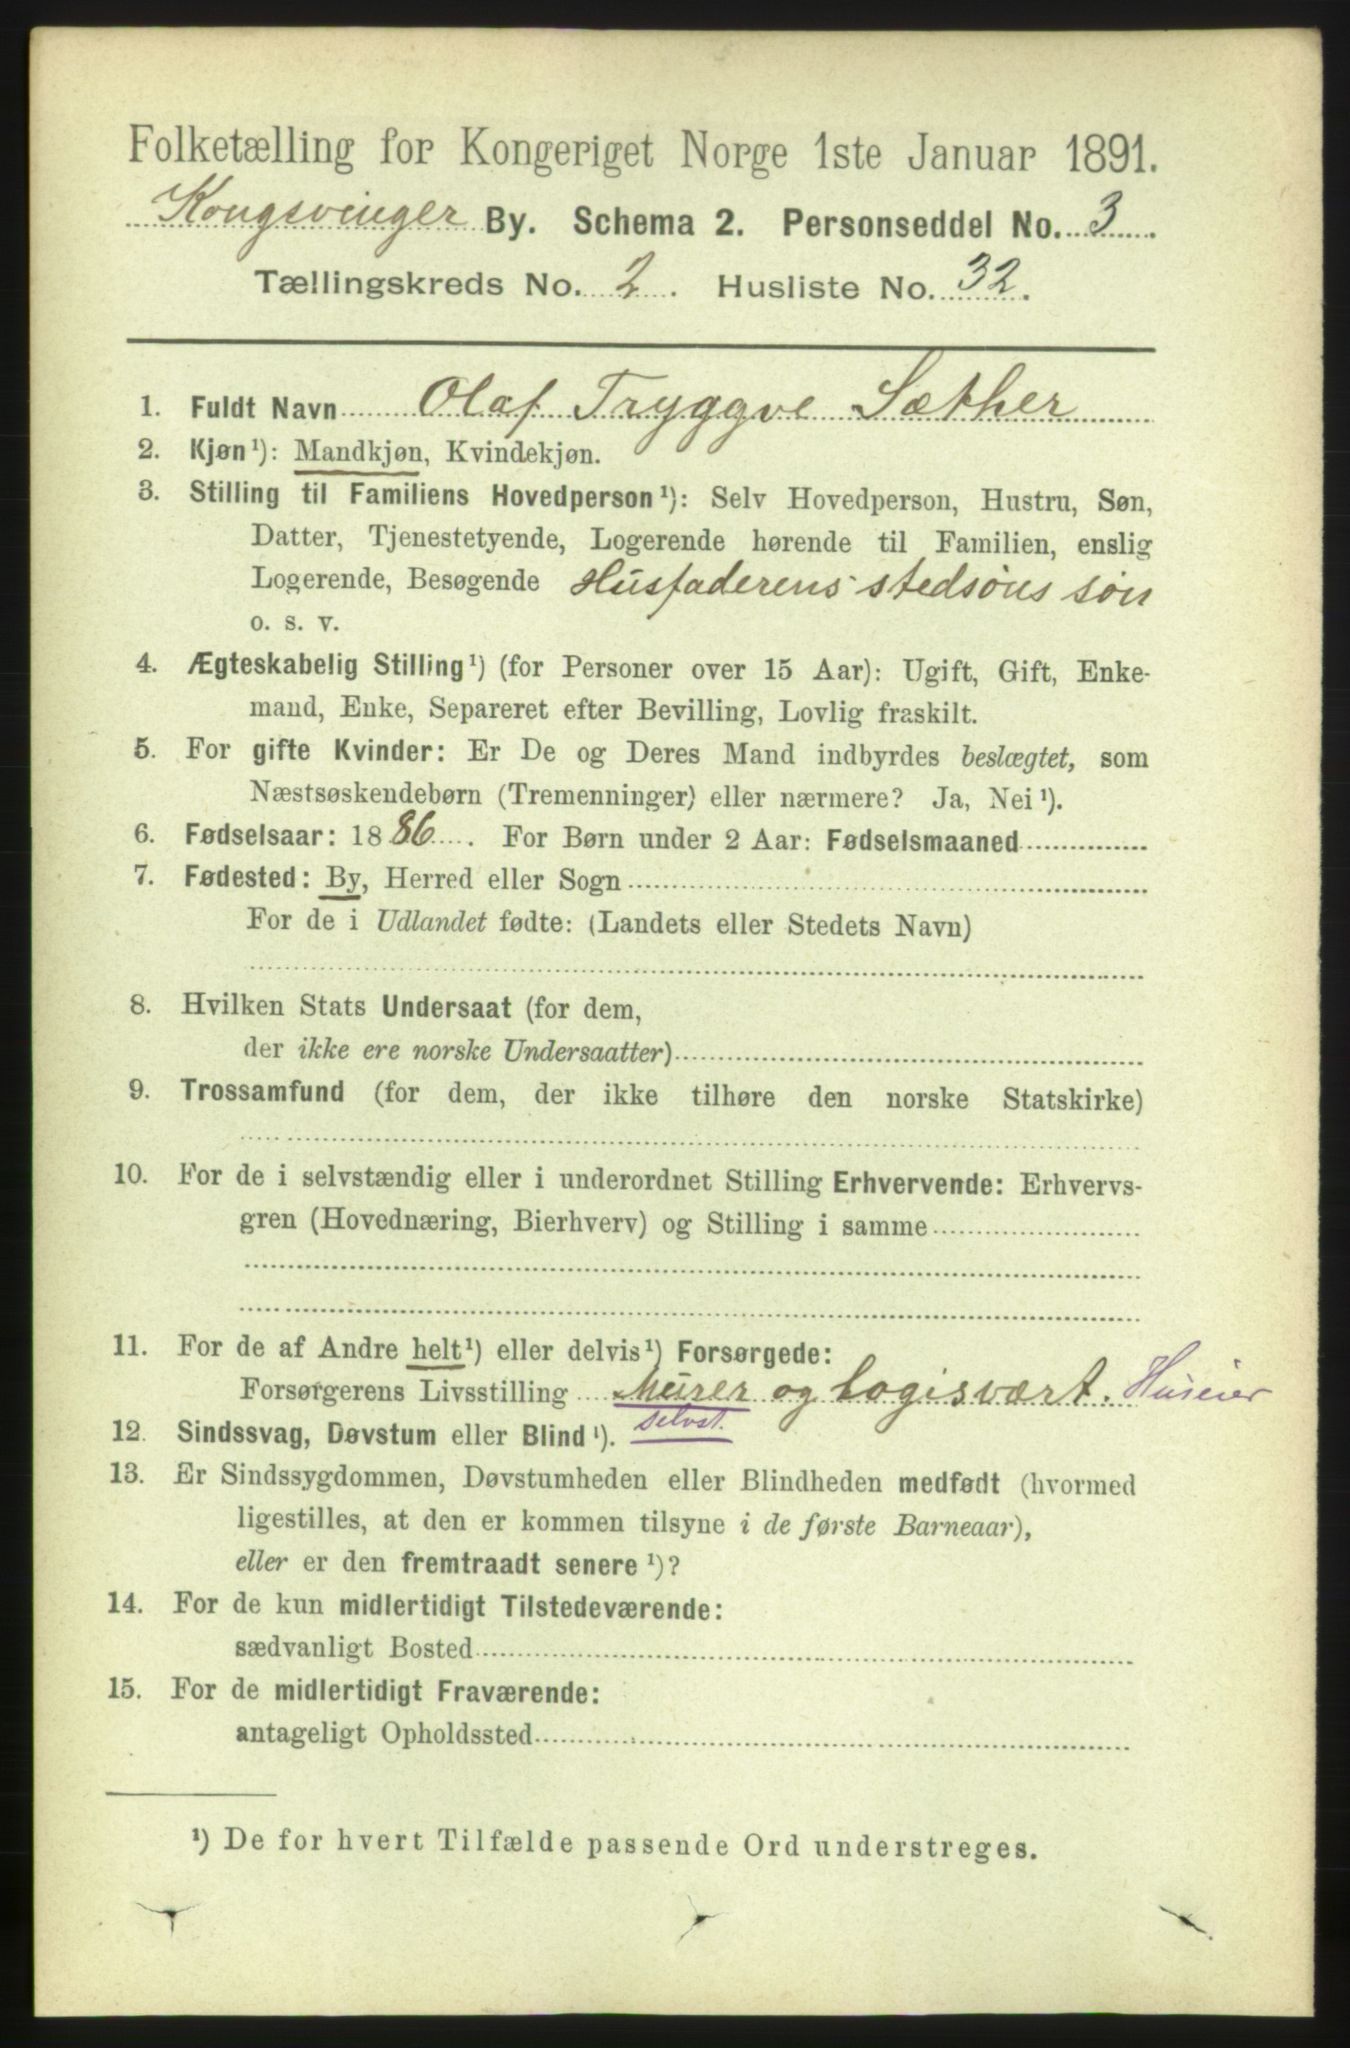 Folketælling for Kongeriget Norge 1ste Januar 1891.
Kongsvinger By. Schema 2. Personseddel No. 3.
Tællingskreds No. 2. Husliste No. 32.
1. Fuldt Navn Olaf Tryggve Sæther
2. Kjøn¹): Mandkjøn, Kvindekjøn.
3. Stilling til Familiens Hovedperson¹): Selv Hovedperson, Hustru, Søn,
Datter, Tjenestetyende, Logerende hørende til Familien, enslig
Logerende, Besøgende Husfaderens stedsøns søn
o. s. v.
4. Ægteskabelig Stilling¹) (for Personer over 15 Aar): Ugift, Gift, Enke-
mand, Enke, Separeret efter Bevilling, Lovlig fraskilt.
5. For gifte Kvinder: Er De og Deres Mand indbyrdes beslægtet, som
Næstsøskendebørn (Tremenninger) eller nærmere? Ja, Nei¹).
6. Fødselsaar: 1886. For Børn under 2 Aar: Fødselsmaaned
7. Fødested: By, Herred eller Sogn
For de i Udlandet fødte: (Landets eller Stedets Navn)
8. Hvilken Stats Undersaat (for dem,
der ikke ere norske Undersaatter)
9. Trossamfund (for dem, der ikke tilhøre den norske Statskirke)
10. For de i selvstændig eller i underordnet Stilling Erhvervende: Erhvervs-
gren (Hovednæring, Bierhverv) og Stilling i samme
11. For de af Andre helt¹) eller delvis¹) Forsørgede:
Forsørgerens Livsstilling Murer og Logisvært. Huseier
selvst.
12. Sindssvag, Døvstum eller Blind¹).
13. Er Sindssygdommen, Døvstumheden eller Blindheden medfødt (hvormed
ligestilles, at den er kommen tilsyne i de første Barneaar),
eller er den fremtraadt senere¹)?
14. For de kun midlertidigt Tilstedeværende:
sædvanligt Bosted
15. For de midlertidigt Fraværende:
antageligt Opholdssted
¹) De for hvert Tilfælde passende Ord understreges.